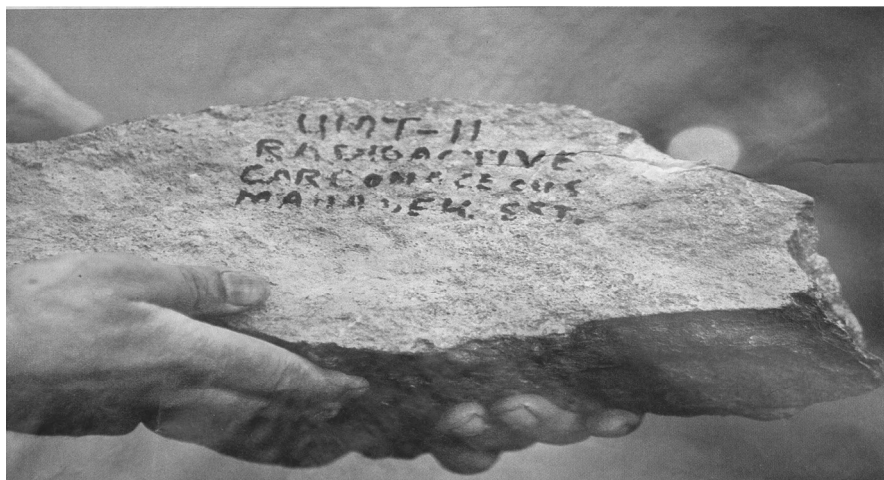 UMT-11
RADIOACTIVE
CARBONACEOUS
MAHADEK SST.